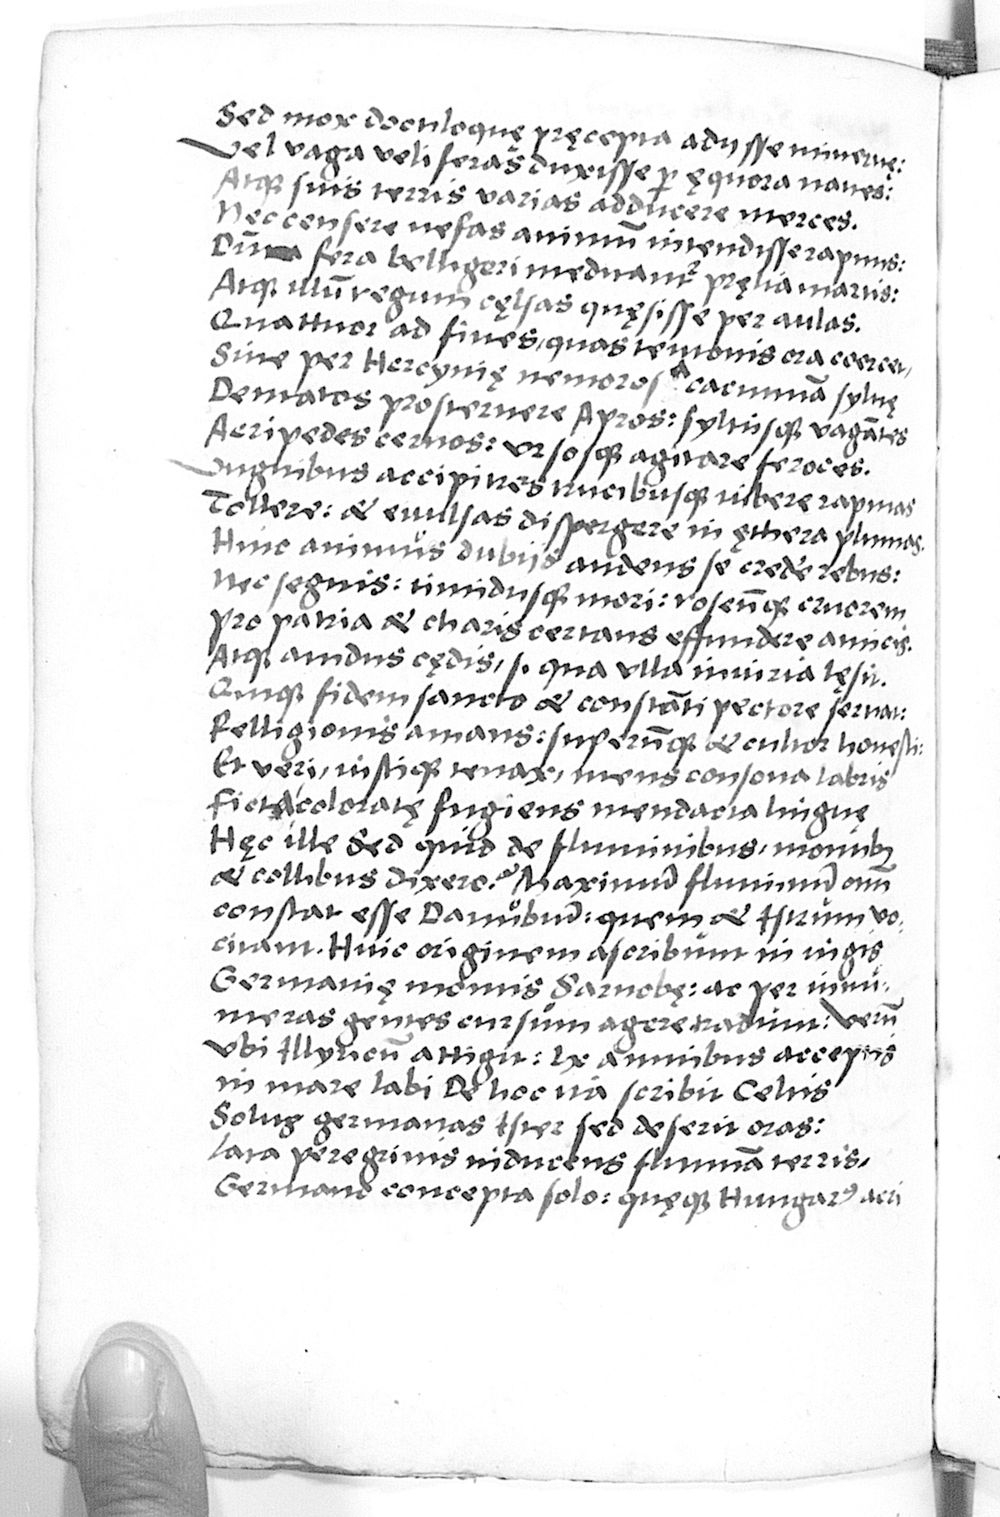 Sed mox dociloquę pręcepta adijsse mineruę:
Vel vaga veliferas duxisse ꝑ ęquora naues:
Atqꝫ suis terris varias adducere merces.
Nec censere nefas animū intendisse rapinis:
Dū fera belligeri meditant᷑ pręlia martis:
Atqꝫ illū regum cęlsas quęsisse per aulas.
Quattuor ad fines, quas temonis ora coercet,
Siue per Hercynię nemorosa cacumina syluę
Dentatos prosternere Apros: syluisqꝫ vagātes
Acripedes ceruos: vrsosqꝫ agitare feroces.
Vnguibus accipitres trucibusqꝫ iubere rapinas
Tollere: & euulsas dispergere in ęthera plumas.
Huic animus dubijs audens se credere rebus:
Nec segnis: timidusqꝫ mori: roseūqꝫ cruorem
Pro patria & charis certans effundere amicis.
Atqꝫ auidus cędis, si qua vlla iniuria lęsit.
Quiqꝫ fidem sancto & constāti pectore seruat:
Relligionis amans: superūqꝫ & cultor honesti:
Et veri, iustiqꝫ tenax, mens consona labris
Ficta coloratę fugiens mendacia linguę
Hęc ille Sed quid de fluminibus, montibꝫ
& collibus dixero? Maximū fluminū om̄
constat esse Danubiū: quem & Istrum vo,
citant. Huic originem ascribunt in iugis
Germanię montis Sarnobę: ac per innu,
meras gentes cursum agere tradunt: Verū
vbi Illyricū attigit: lx amnibus acceptis
in mare labi De hoc ita scribit Celtis
Solus germanas Ister sed deserit oras:
Lata peregrinis inducens flumina terris,
Germano concepta solo: quęqꝫ Hungarꝰ acri